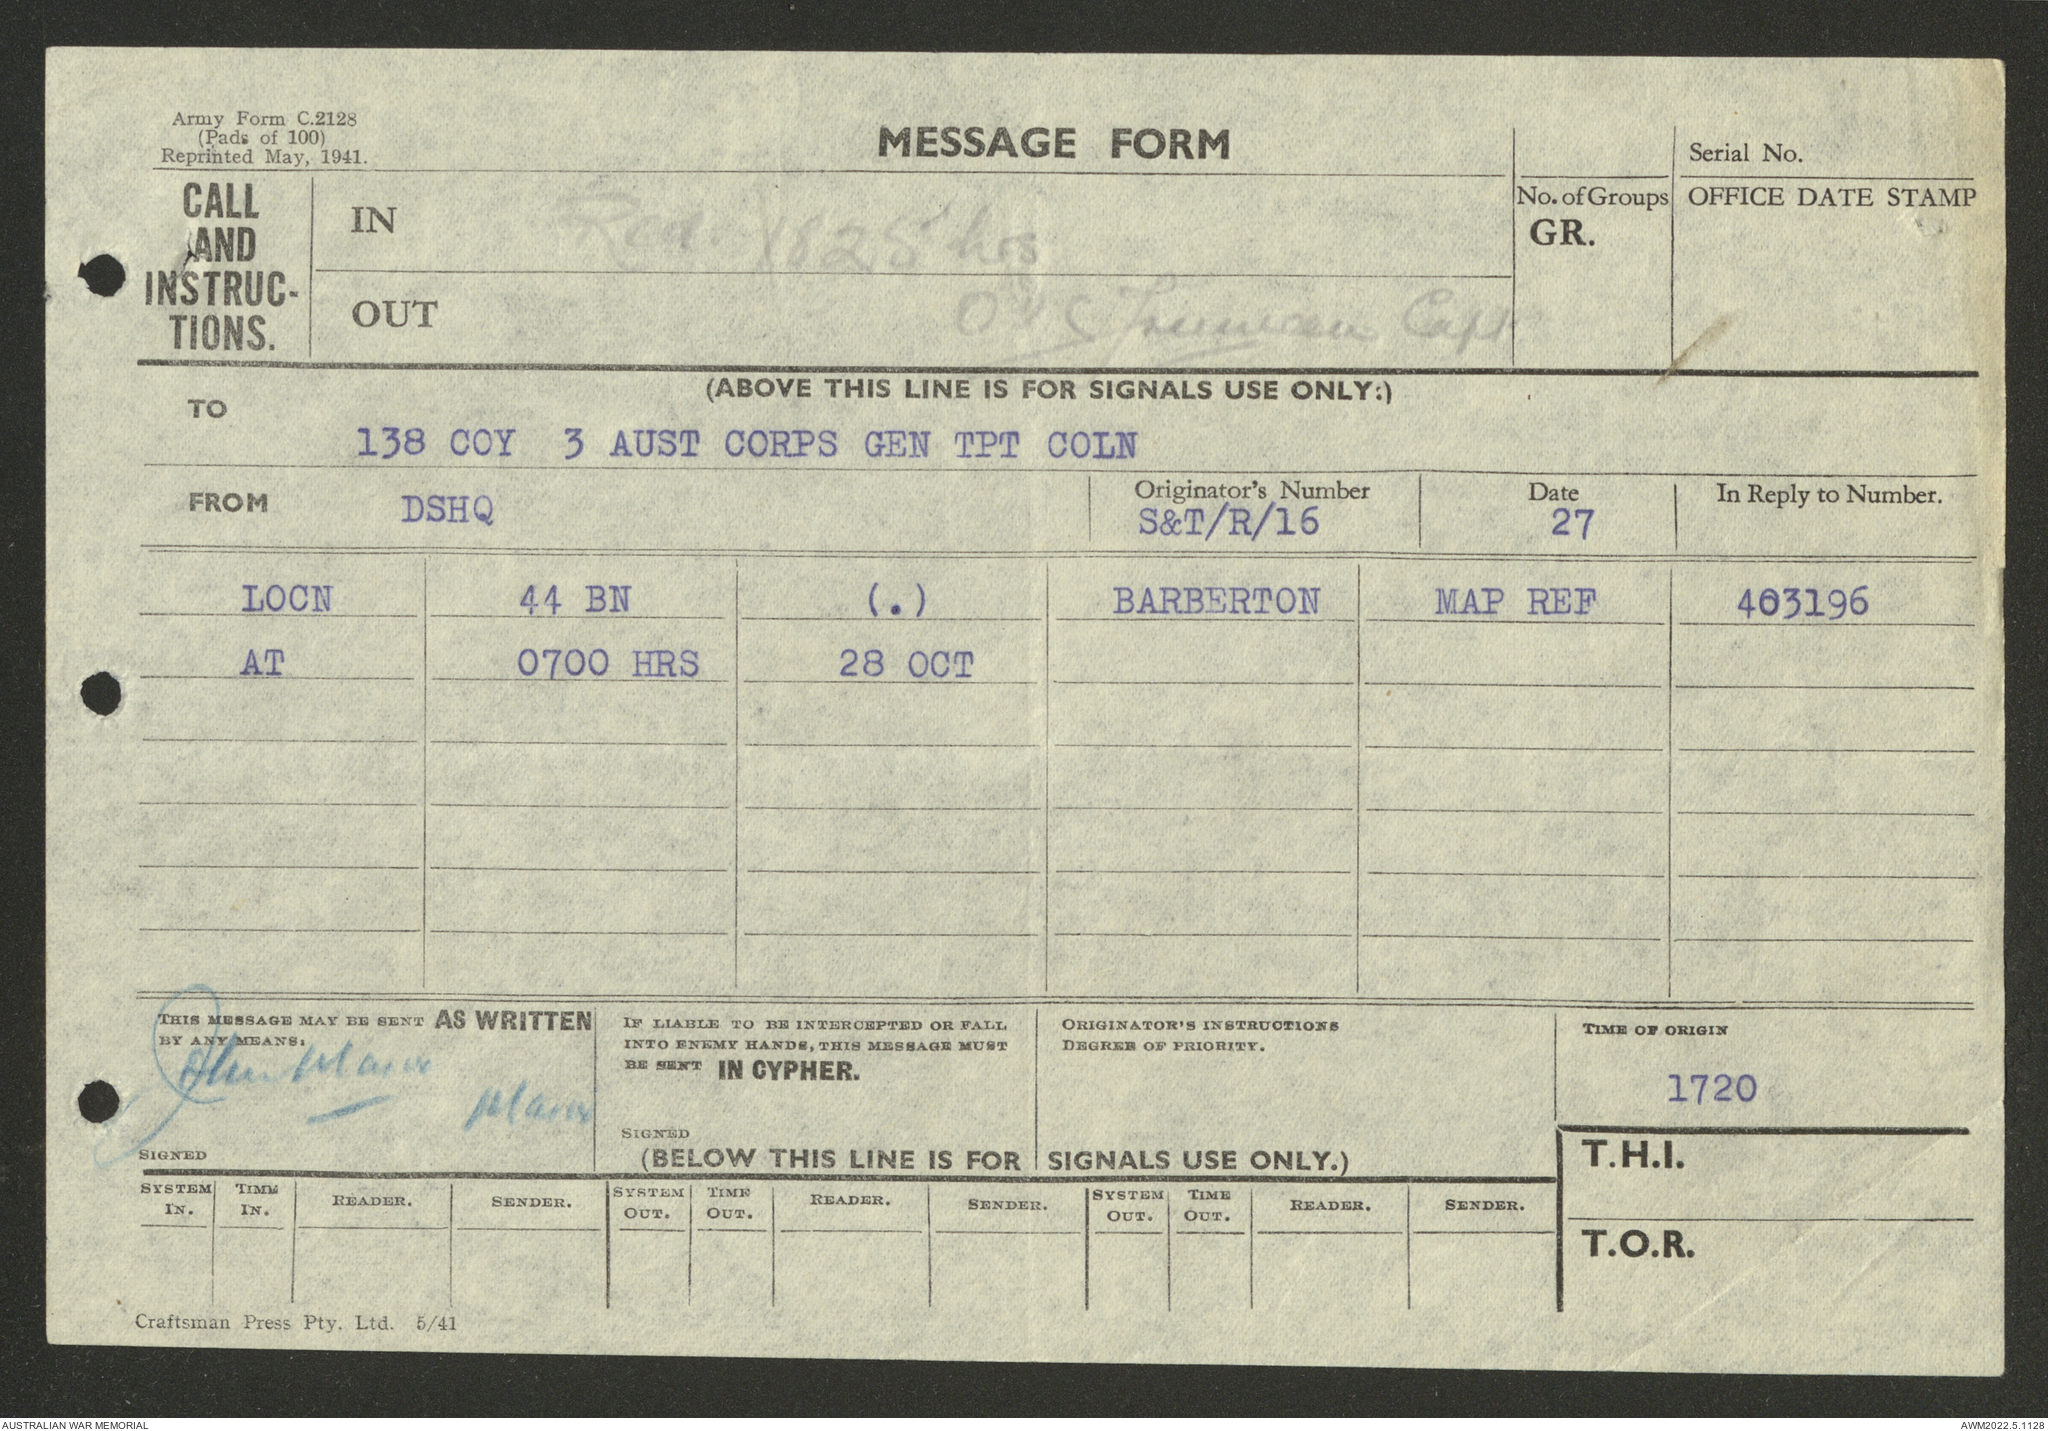 Army Form C.2128
(Pads of 100)
Reprinted May, 1941.
MESSAGE FORM
Serial No.
CALL
AND
INSTRUC-
TIONS.
IN
1825 hrs
No. of Groups
GR.
OFFICE DATE STAMP
OUT
Capt
(ABOVE THIS LINE IS FOR SIGNALS USE ONLY:)
TO
138 COY 3 AUST CORPS GEN TPT COLN
FROM
DSHQ
Originator's Number
S&T/R/16
Date
27
In Reply to Number.
LOCN 44 BN (.) BARBERTON MAP REF 403196
AT 0700 HRS 28 OCT
THIS MESSAGE MAY BE SENT AS WRITTEN
BY ANY MEANS:
SIGNED
IF LIABLE TO BE INTERCEPTED OR FALL
INTO ENEMY HANDS, THIS MESSAGE MUST
BE SENT IN CYPHER.
SIGNED
ORIGINATOR'S INSTRUCTIONS
DEGREE OF PRIORITY.
TIME OF ORIGIN
1720
(BELOW THIS LINE IS FOR SIGNALS USE ONLY.)
T.H.I.
T.O.R.
SYSTEM IN. TIME IN. READER. SENDER. SYSTEM OUT. TIME OUT. READER. SENDER. SYSTEM OUT. TIME OUT. READER. SENDER.
Craftsman Press Pty. Ltd. 5/41
AUSTRALIAN WAR MEMORIAL
AWM2022.5.1128